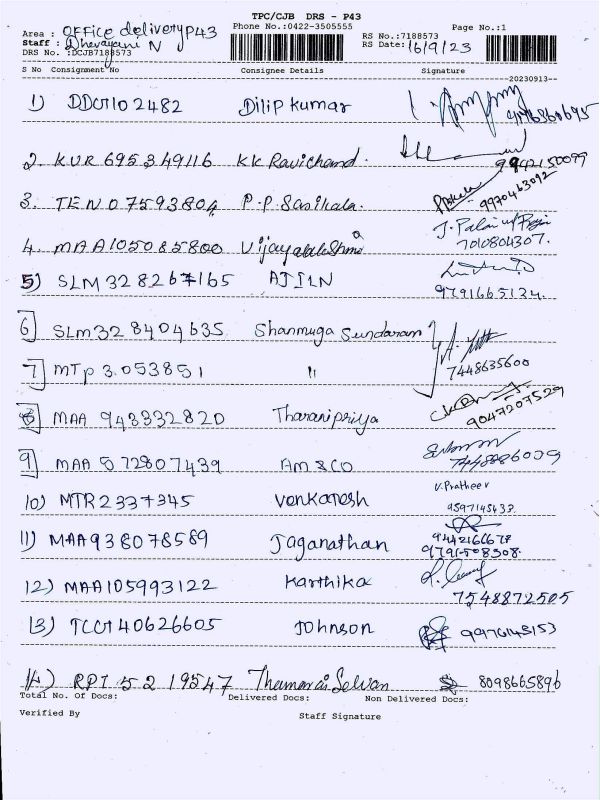 TPC/CJB DRS - P43
Area : Office delivery P43 Phone No.:0422-3505555 Page No.:1
Staff : Dhevayani N RS No.:7188573
DRS No. :DCJB7188573 RS Date: 16/9/23
S No Consignment No Consignee Details Signature
20230913
1) Dilip kumar
2. KUR 695349116 KK Ravichand. 9942150099
3. TEN 07593804 P.P. Sasikala. 9970463092
4. MAA105085800 Vijayalakshmi 7010804307.
5) SLM 328267165 9791665124.
6) SLM328404635 Shanmuga Sundaram
7) MTP 3053851 " 7448635600
8) MAA 943332820 Tharanipriya 9047207529
9) MAA 572807439 AM & CO 7448886009
10) MTR 2337345 Venkatesh V. Pratheev 9597145438.
11) MAA938078589 Jaganathan 9442166678
9791508308.
12) MAA105993122 Karthika 7548872505
13) TCC140626605 Johnson 9976145153
14) RPT 5219547 Thamarai Selvan 8098665896
Total No. Of Docs: Delivered Docs: Non Delivered Docs:
Verified By Staff Signature